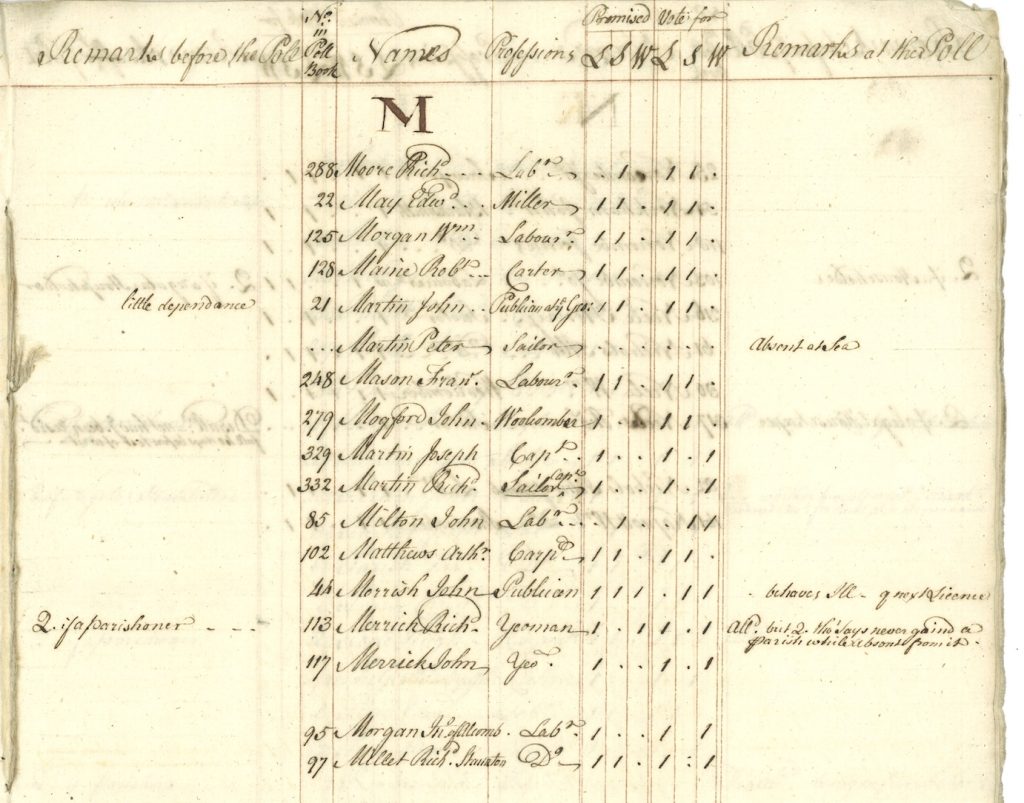 Remarks before the Poll No. in Poll Book Names Professions Promised Vote for Remarks at the Poll
L S W L S W
M
288 Moore Richd. . . . Labr. . . 1 . 1 1 .
22 May Edwd. . . Miller 1 1 . 1 1 .
125 Morgan Wm. . . Labourr. 1 1 . 1 1 .
128 Maine Robt. . . . Carter 1 1 . 1 1 .
little dependance 21 Martin John . . Publican 1 1 . 1 1 .
. . . Martin Peter Sailor . . . . . . Absent at Sea
248 Mason Frans. Labourr. 1 1 . 1 1 .
279 Mogford John Woolcomber 1 . . 1 1 .
329 Martin Joseph Capt. . 1 . . 1 . 1
332 Martin Richd. Sailor Capt. 1 . . 1 . 1
85 Milton John Labr. . . . 1 . . 1 1
102 Matthews Arthr. Carpr. 1 1 . 1 1 .
44 Morrish John Publican 1 1 1 1 . 1 . behaves Ill - q next Licence
2. if a parishoner - - - 113 Merrick Richd. Yeoman 1 . 1 1 . 1 Alld. but 2. tho' says never gaind a
parish while absent from it .
117 Merrick John Yeo. 1 . . 1 . 1
95 Morgan Jno. of Alcomb . Labr. 1 . . 1 . 1
97 Millet Richd. Staunton Do. 1 1 . 1 : 1